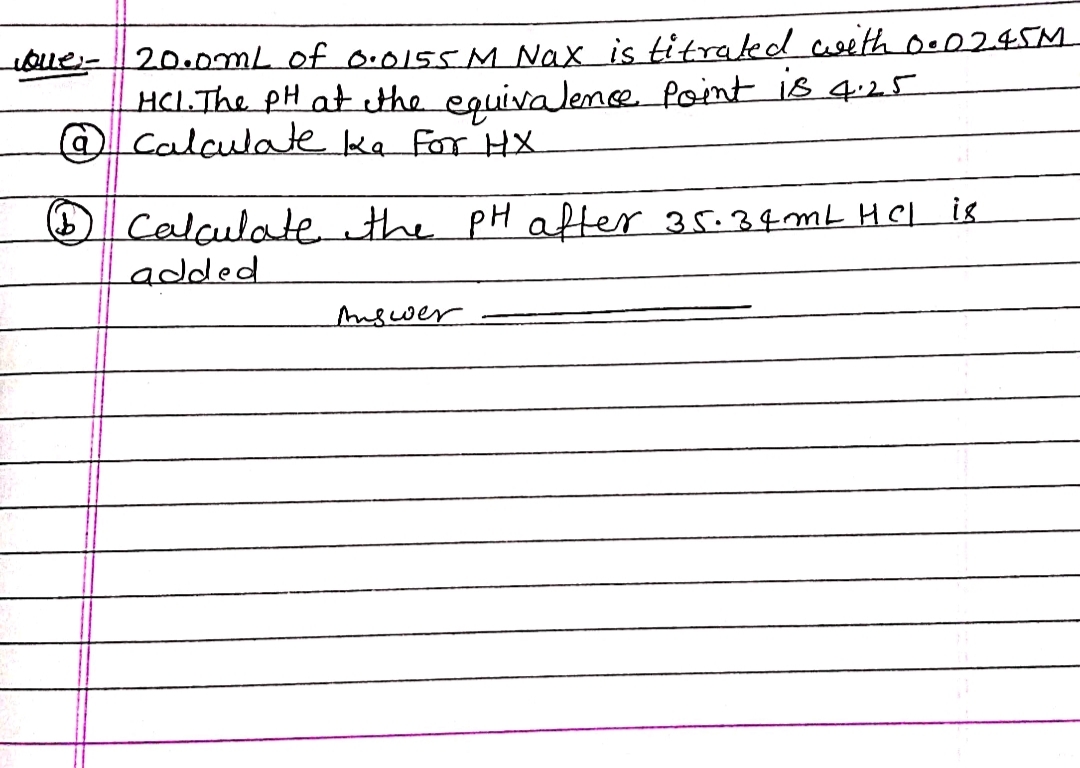 Que:- 20.0mL of 0.0155 M NaX is titrated with 0.0245M
HCl. The PH at the equivalence Point is 4.25
(a) Calculate ka For HX
(b) Calculate the PH after 35.34mL HCl is
added
Answer